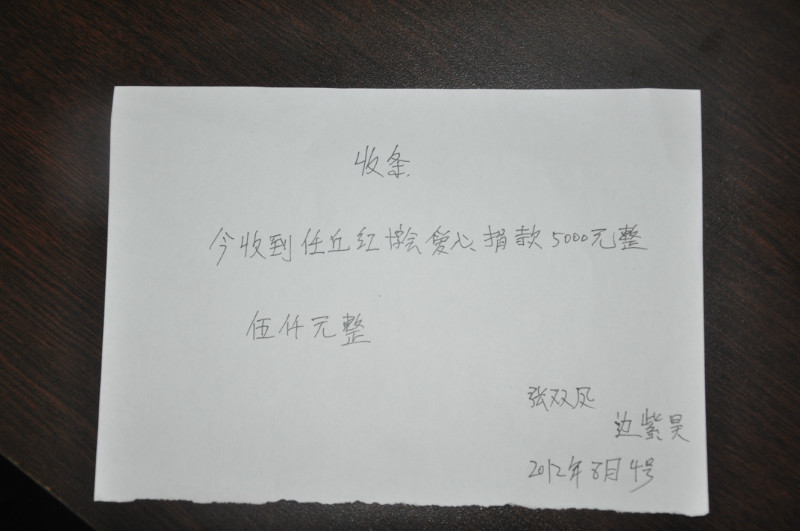 收条
今收到任丘红十字会爱心捐款5000元整
伍仟元整
张双凤
边紫昊
2012年8月4号